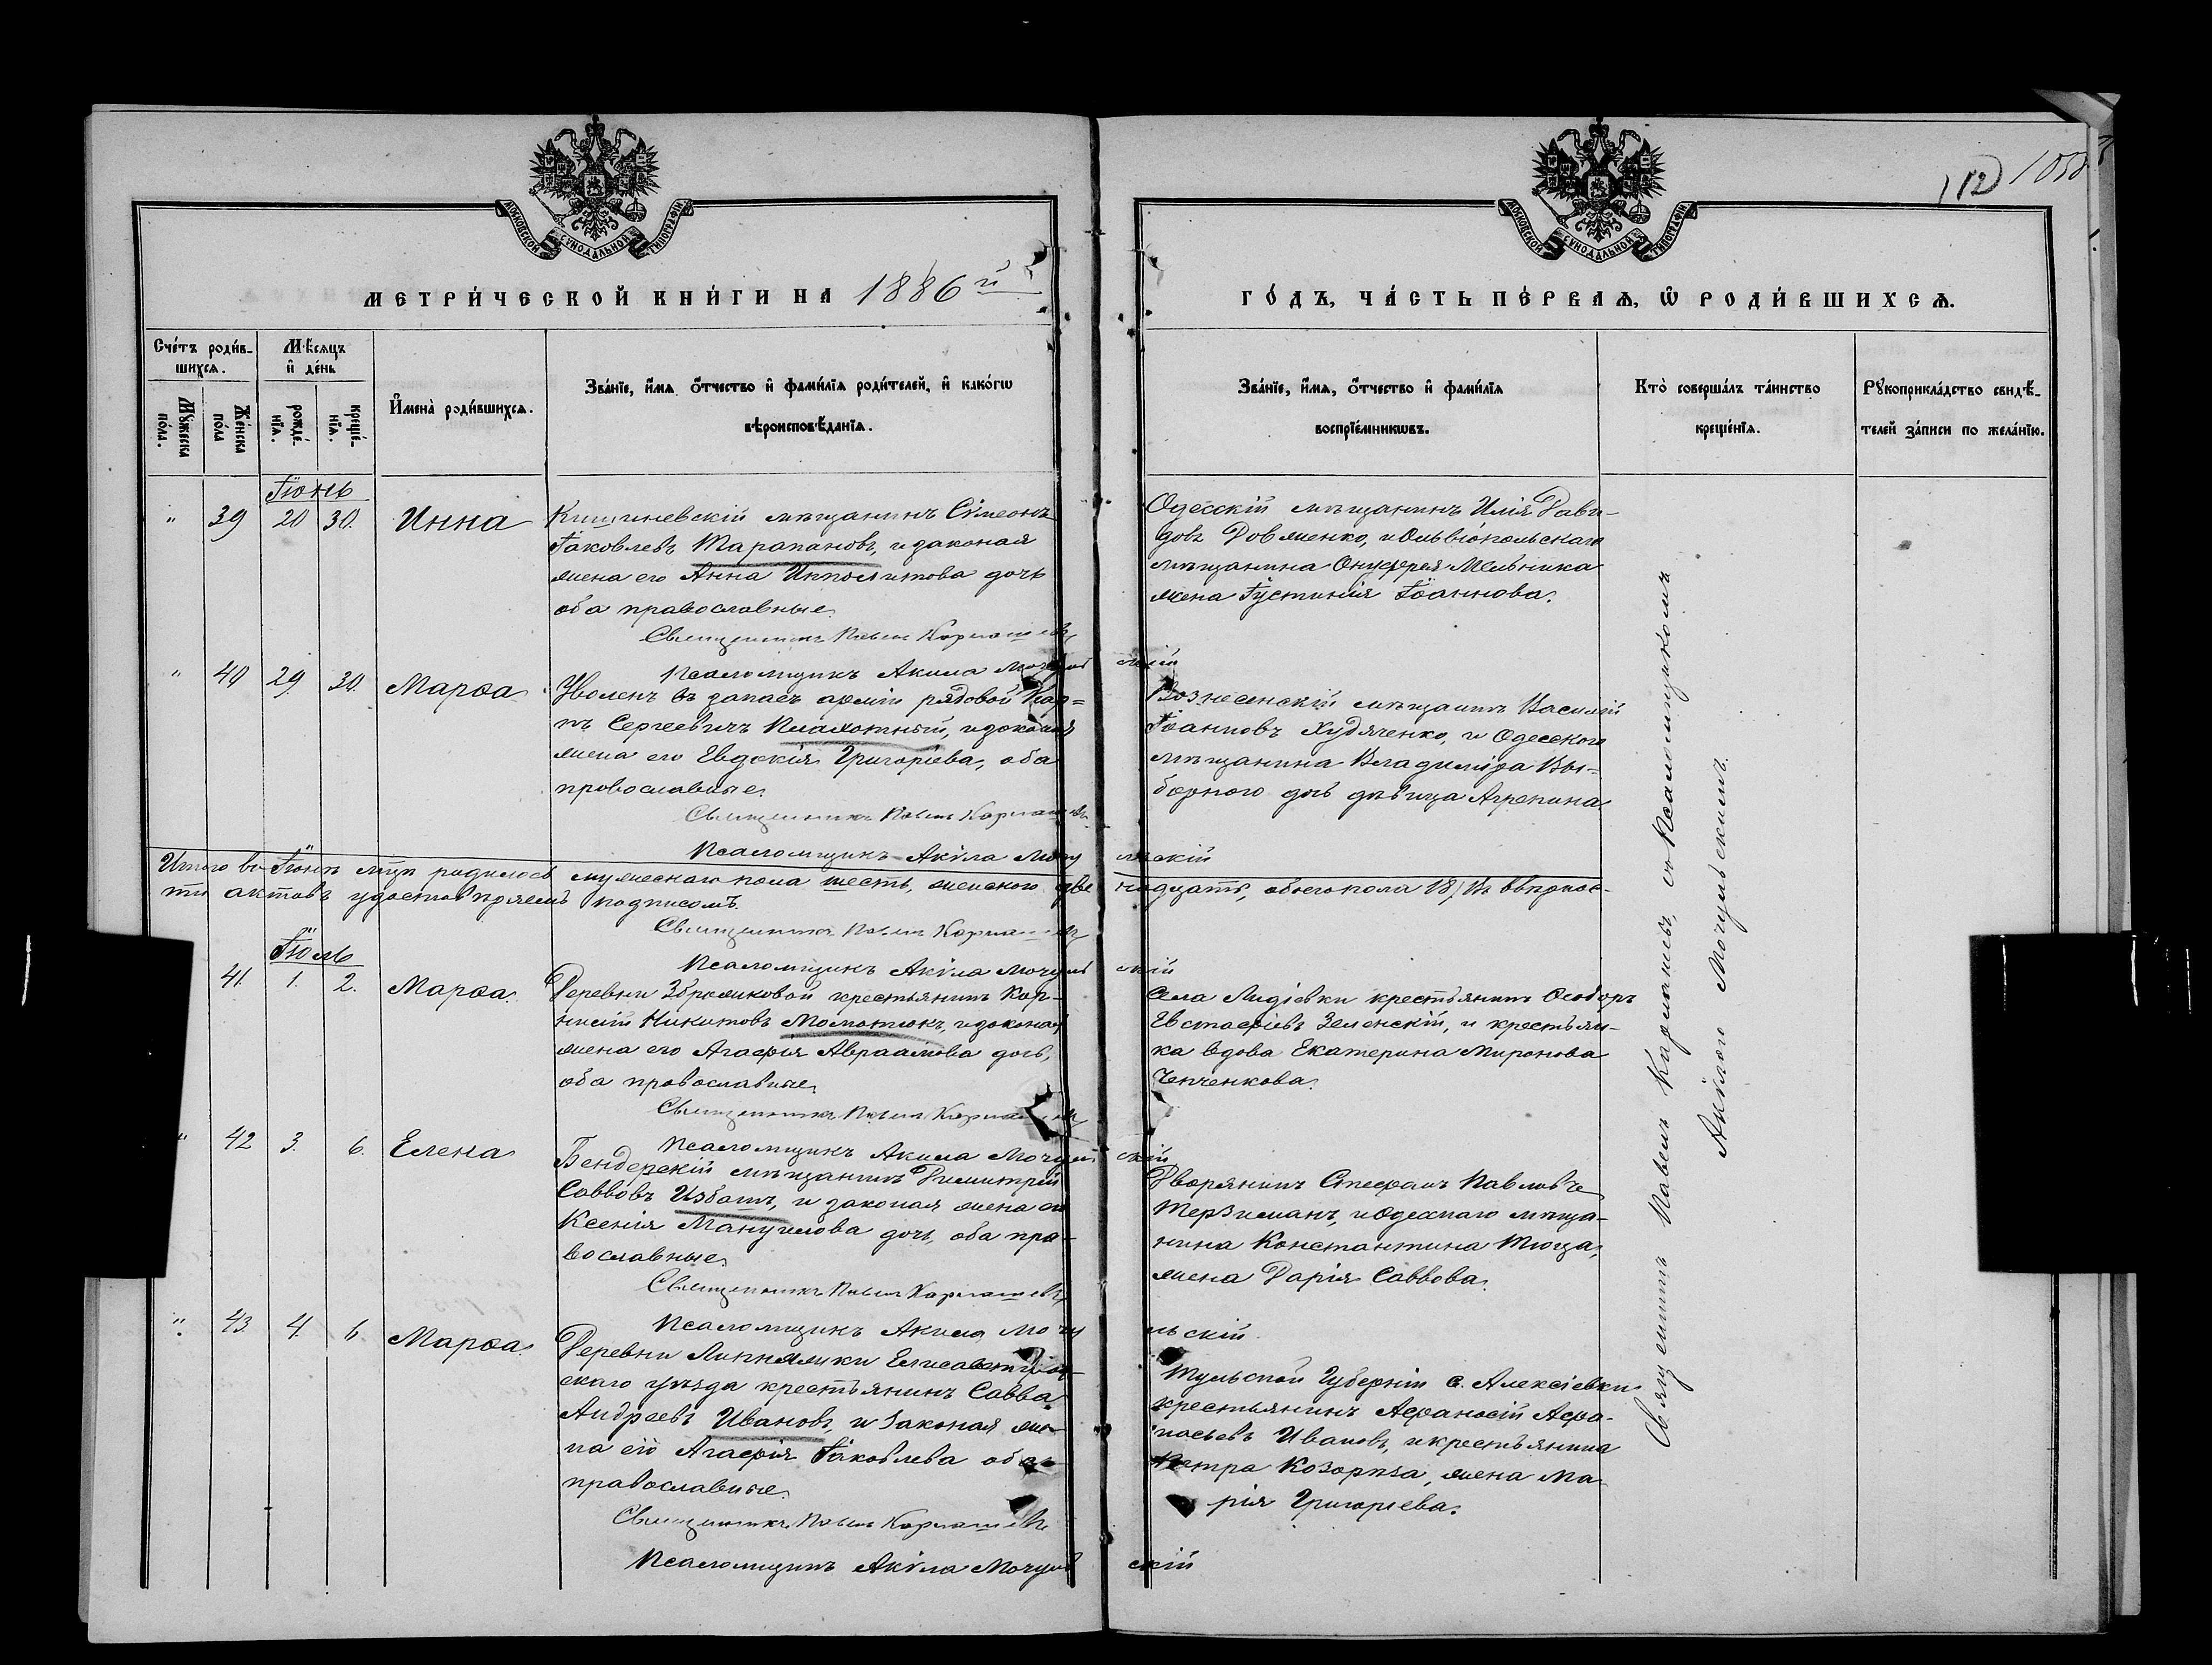 112 1058
МОСКОВСКОЙ СУНОДАЛЬНОЙ ТИПОГРАФІИ
МОСКОВСКОЙ СУНОДАЛЬНОЙ ТИПОГРАФІИ
МЕТРИ́ЧЕСКОЙ КНИ́ГИ НА 1886 й
ГО́ДЪ, ЧА́СТЬ ПЕ́РВАѦ, Ѡ҆ РОДИ́ВШИХСѦ.
Сче́тъ роди́в-
шихсѧ.
Мѣ́сѧцъ
и҆ де́нь
Мꙋ́жеска
по́ла.
Же́нска
по́ла
рожде́-
нїѧ.
креще́-
нїѧ.
И҆мена̀ роди́вшихсѧ.
Зва́нїе, и҆́мѧ, ѻ҆́тчество и҆ фами́лїѧ роди́телей, и҆ како́гѡ
вѣроисповѣ́данїѧ.
Зва́нїе, и҆́мѧ, ѻ҆́тчество и҆ фами́лїѧ
воспрїе́мникѡвъ.
Кто̀ соверша́лъ та́инство
креще́нїѧ.
Рꙋкоприкла́дство свидѣ́-
телей за́писи по жела́нїю.
Іюнь
" 39 20 30. Инна
Кишиневскій мѣщанинъ Сѵмеонъ
Іаковлевъ Тарапановъ, и законая
жена его Анна Ипполитова дочь
оба православные.
Священникъ Павелъ Кармашевъ
Псаломщикъ Акила Мочульскій
Одесскій мѣщанинъ Илія Дави-
довъ Довженко, и Ольвіопольскаго
мѣщанина Онуфрея Мельника
жена Іустинія Іоаннова.
" 40 29. 30. Марѳа
Уволенъ въ запасъ арміи рядовой Кар-
пъ Сергеевичъ Плахотный, и законая
жена его Евдокія Григоріева, оба
православные.
Священникъ Павелъ Кармашевъ
Псаломщикъ Акіла Мочульскій
Вознесенскій мѣщанинъ Василій
Іоанновъ Худяченко, и Одесского
мѣщанина Владиміра Вы-
борного дочь дѣвица Агрепина.
Итого въ Іюнѣ мцѣ родилось мужескаго пола шесть, женского двенадцать, обоего пола 18, въ вѣрнос-
ти актовъ удостовѣряемъ подписомъ.
Священникъ Павелъ Кармашевъ
Псаломщикъ Акіла Мочульскій
Іюль
41. 1. 2. Марѳа.
Деревни Збрożиковой крестьянинъ Кор-
нилій Никитовъ Моматюкъ, и законая
жена его Агафія Авраамова дочь,
оба православные.
Священникъ Павелъ Кармашевъ
Псаломщикъ Акила Мочульскій
Села Лидіевки крестьянинъ Ѳеодоръ
Евстафіевъ Зеленскій, и крестьян-
ка вдова Екатерина Миронова
Ченченкова.
" 42 3. 6. Елена
Бендерскій мѣщанинъ Димитрій
Саввовъ Избашъ, и законая жена его
Ксенія Мануилова дочь, оба пра-
вославные.
Священникъ Павелъ Кармашевъ
Псаломщикъ Акила Мочульскій
Дворянинъ Стефанъ Павловъ
Терзиманъ, и Одесскаго мѣща-
нина Константина
жена Дарія Саввова.
" 43. 4. 6 Марѳа.
Деревни Липняжки Елисаветград-
скаго уѣзда крестьянинъ Савва
Андреевъ Ивановъ, и законая же-
на его Агафія Іаковлева оба
православные.
Священникъ Павелъ Кармашевъ
Псаломщикъ Акіла Мочульскій
Тульской Губерніи с. Алексіевки
крестьянинъ Афанасій Афа-
насьевъ Ивановъ, и крестьянина
Петра Козориза, жена Ма-
рія Григорьева.
Священникъ Павелъ Кармашевъ, съ Псаломщикомъ
Акілою Мочульскимъ.